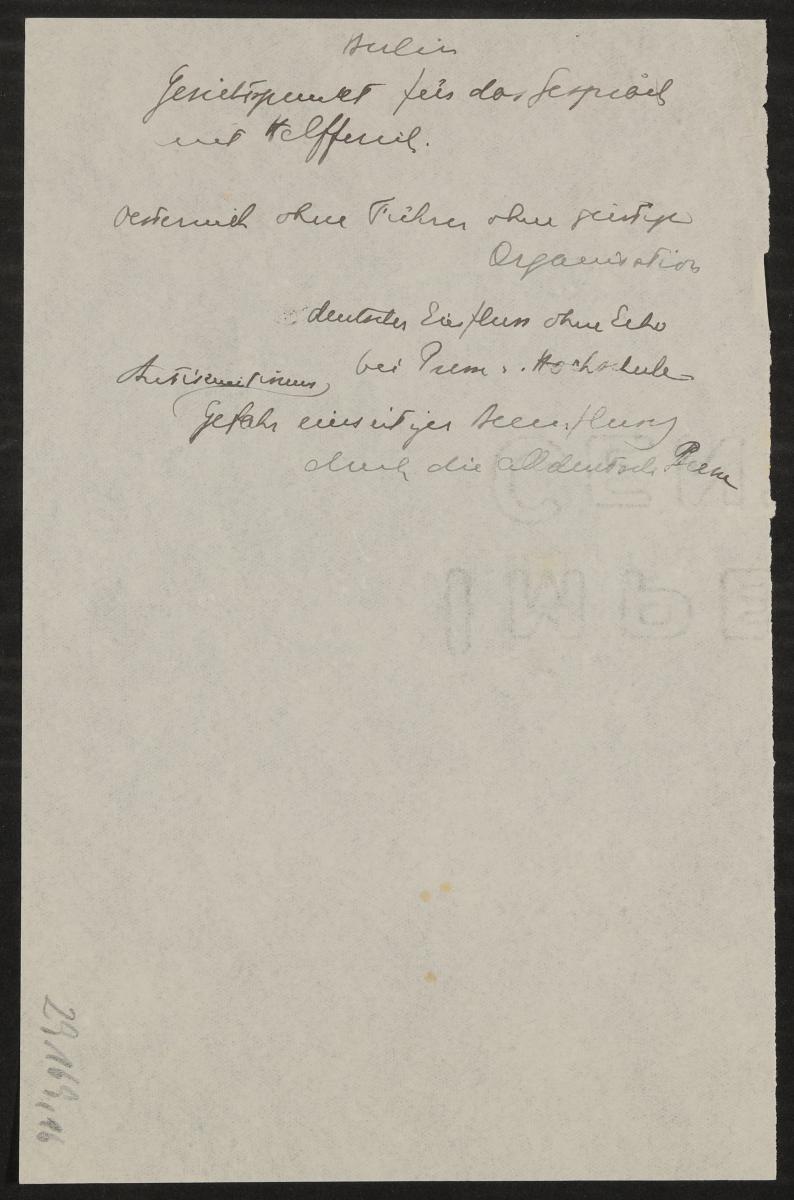 Berlin
Gesichtspunkt für das Gespräch
mit Helfferich.
Oesterreich ohne Führer ohne geistige
Organisation
deutscher Einfluss ohne Echo
bei Presse u. Hochschule
Antisemitismus
Gefahr einseitiger Beeinflussung
durch die alldeutsche Presse
29,169,16